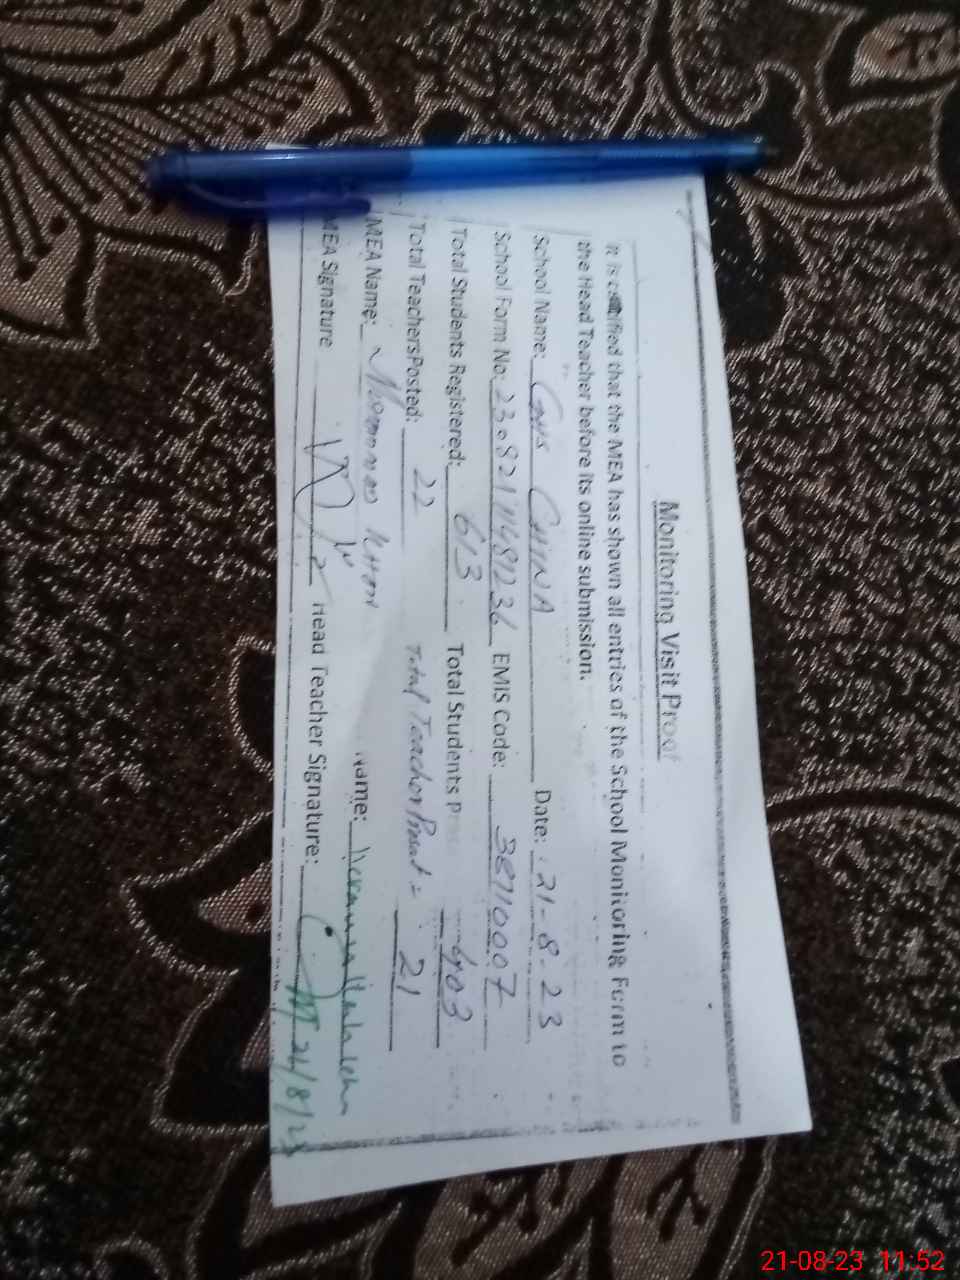 Monitoring Visit Proof
It is certified that the MEA has shown all entries of the School Monitoring Form to
the Head Teacher before its online submission.
School Name: GHS CHINA Date: 21-8-23
School Form No: 230821148236 EMIS Code: 38710007
Total Students Registered: 613 Total Students P 403
Total TeachersPosted: 22 Total Teacher Present = 21
MEA Name: Name:
MEA Signature Head Teacher Signature: 21/8/23
21-08-23 11:52